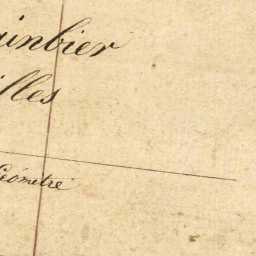 ainbier
illes
Géomètre